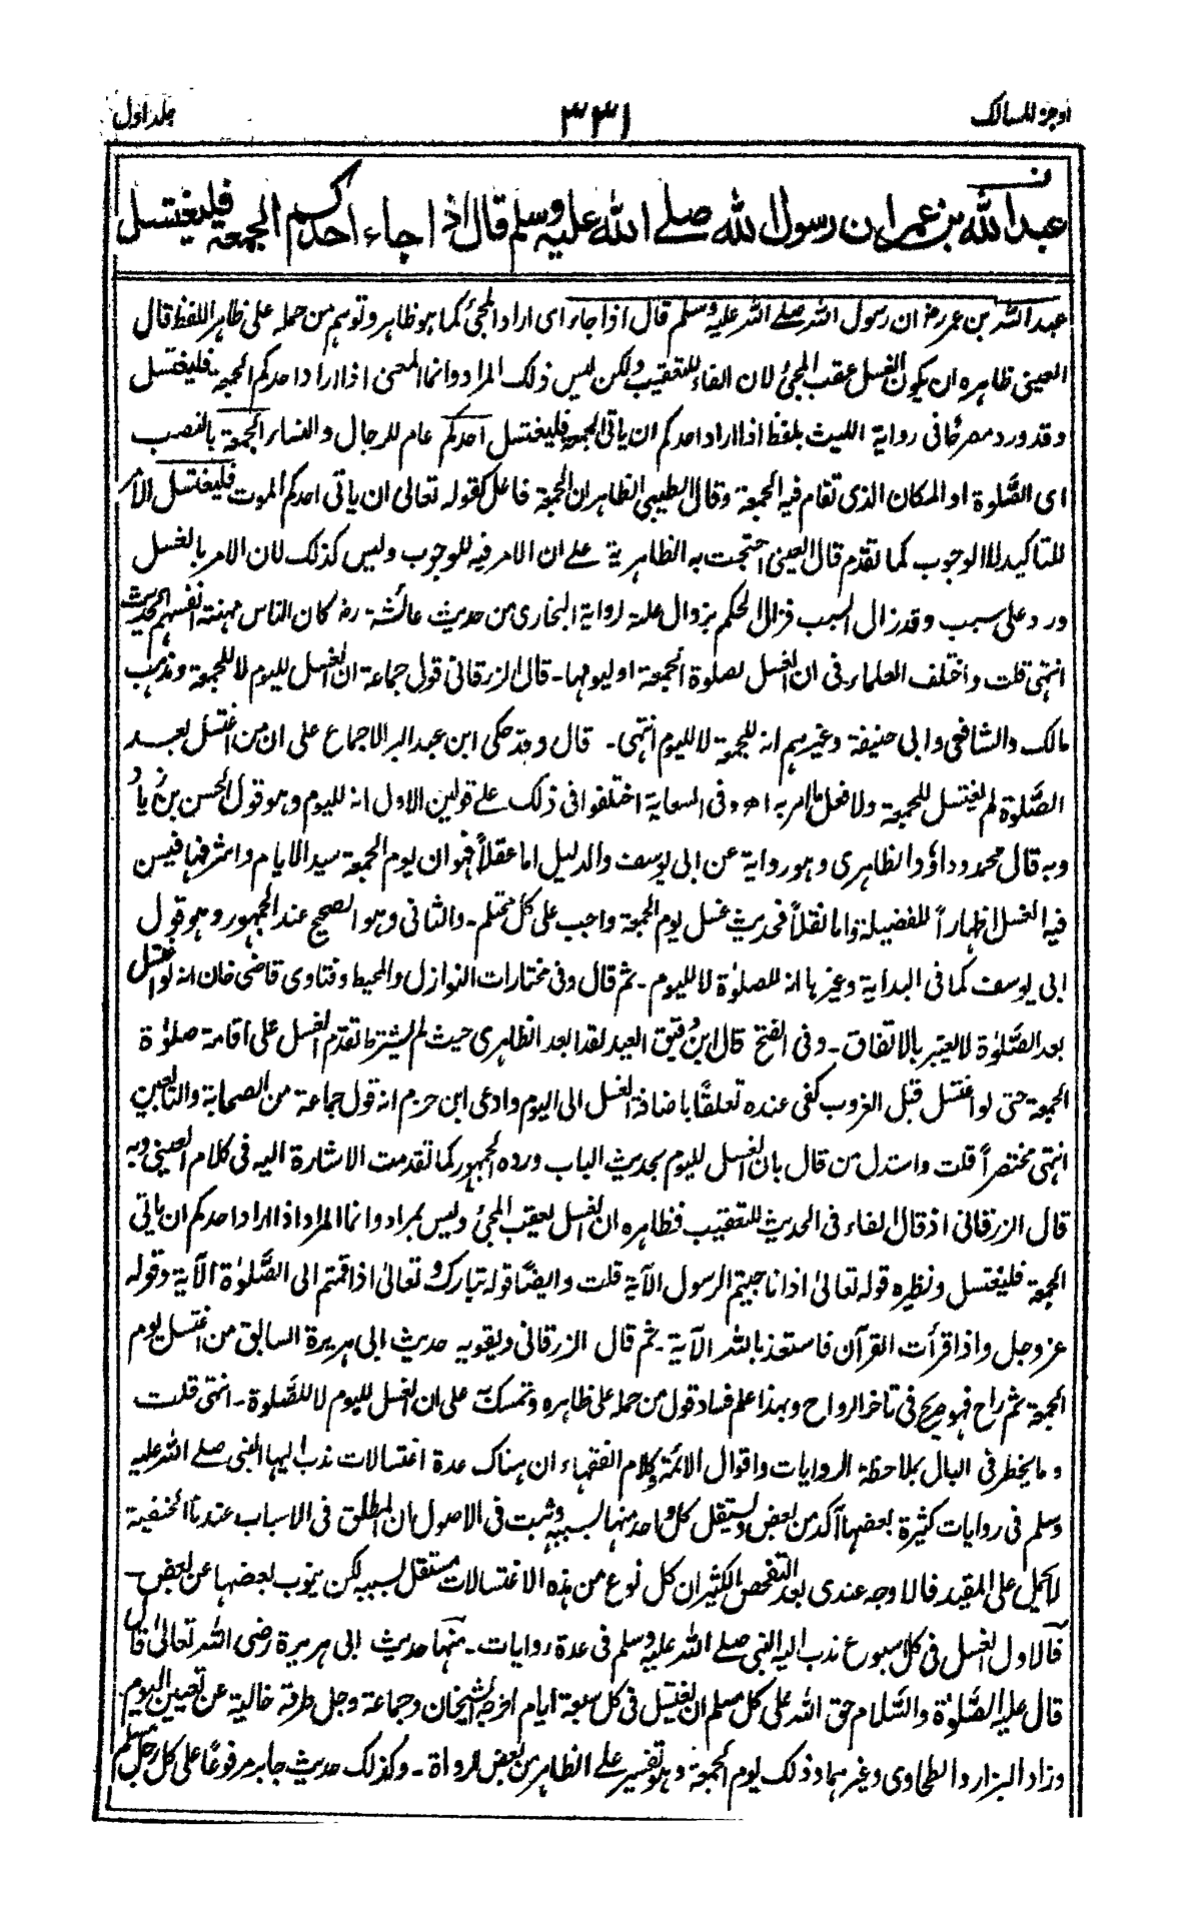 اوجز المسالك
٣٣١
جلد اول
عبد الله بن عمر ان رسول الله صلے الله عليه وسلم قال اذا جاء احدكم الجمعة فليغتسل
عبد الله بن عمر رض ان رسول الله صلے الله عليه وسلم قال اذا جاء اى اراد المجئ كما هو ظاهر وتوهم من حمله على ظاهر اللفظ قال
العينى ظاهره ان يكون الغسل عقب المجئ لان الفاء للتعقيب ولكن ليس ذلك المراد وانما المعنى اذا اراد احدكم الجمعة فليغتسل
وقد ورد مصرحا فى رواية الليث بلفظ اذا اراد احدكم ان ياتى الجمعة فليغتسل احدكم عام للرجال والنساء الجمعة بالنصب
اى الصَّلوة او المكان الذى تقام فيه الجمعة وقال الطيبى الظاهر ان الجمعة فاعل كقوله تعالى ان ياتى احدكم الموت فليغتسل الامر
للتاكيد لا الوجوب كما تقدم قال العينى احتجت به الظاهرية على ان الامر فيه للوجوب وليس كذلك لان الامر بالغسل
ورد على سبب وقد زال السبب فزال الحكم بزوال علة لرواية البخارى من حديث عائشة رض كان الناس مهنة انفسهم الحديث
انتهى قلت واختلف العلماء فى ان الغسل لصلوة الجمعة او ليومها ۔ قال الزرقانى قول جماعة ان الغسل لليوم لا للجمعة ومذهب
مالك والشافعى وابى حنيفة وغيرهم انه للجمعة لا لليوم انتهى ۔ قال وقد حكى ابن عبد البر الاجماع على ان من اغتسل بعد
الصَّلوة لم يغتسل للجمعة ولا فعل ما امر به اھ وفى السعاية اختلفوا فى ذلك على قولين الاول انه لليوم وهو قول الحسن بن زياد
وبه قال محمد وداؤد الظاهرى وهو رواية عن ابى يوسف والدليل اما عقلاً فهو ان يوم الجمعة سيد الايام واشرفها فيسن
فيه الغسل اظهاراً للفضيلة واما نقلاً فحديث غسل يوم الجمعة واجب على كل محتلم ۔ والثانى وهو الصحيح عند الجمهور وهو قول
ابى يوسف كما فى البداية وغيرها انه للصلوٰة لا لليوم ۔ ثم قال وفى مختارات النوازل والمحيط وفتاوى قاضى خان انه لو اغتسل
بعد الصَّلوٰة لا يعتبر بالاتفاق ۔ وفى الفتح قال ابن دقيق العيد لقد ابعد الظاهرى حيث لم يشترط تقدم الغسل على اقامة صلوٰة
الجمعة حتى لو اغتسل قبل الغروب كفى عنده تعلقًا باضافة الغسل الى اليوم وادعى ابن حزم انه قول جماعة من الصحابة والتابعين
انتهى مختصراً قلت واستدل من قال بان الغسل لليوم بحديث الباب ورده الجمهور كما تقدمت الاشارة اليه فى كلام العينى وبه
قال الزرقانى اذ قال الفاء فى الحديث للتعقيب فظاهره ان الغسل يعقب المجئ وليس بمراد وانما المراد اذا اراد احدكم ان ياتى
الجمعة فليغتسل ونظيره قوله تعالىٰ اذا ناجيتم الرسول الآية قلت وايضًا قوله تبارك وتعالىٰ اذا قمتم الى الصَّلوٰة الآية وقوله
عز وجل واذا قرأت القرآن فاستعذ بالله الآية ۔ ثم قال الزرقانى ويقويه حديث ابى هريرة السابق من اغتسل يوم
الجمعة ثم راح فهو صريح فى تاخر الرواح وبهذا علم فساد قول من حمله على ظاهره وتمسك به على ان الغسل لليوم لا للصَّلوة ۔ انتهى قلت
وما يخطر فى البال بملاحظة الروايات واقوال الائمة وكلام الفقهاء ان هناك عدة اغتسالات ندب اليها النبى صلے الله عليه
وسلم فى روايات كثيرة بعضها آكد من بعض ويستقل كل واحد منها لسببه وثبت فى الاصول ان المطلق فى الاسباب عندنا الحنفية
لا يحمل على المقيد فالاوجه عندى بعد التفحص الكثير ان كل نوع من هذه الاغتسالات مستقل لسببه لكن ينوب بعضها عن بعض ۔
فالاول الغسل فى كل اسبوع ندب اليه النبى صلے الله عليه وسلم فى عدة روايات ۔ منها حديث ابى هريرة رضى الله تعالىٰ قال
قال عليه الصَّلوٰة والسَّلام حق الله على كل مسلم ان يغتسل فى كل سبعة ايام اخرجه الشيخان وجماعة وجل طرقه خالية عن تعيين اليوم
وزاد البزار والطحاوى وغيرهما وذلك يوم الجمعة وهو تفسير على الظاهر من بعض الرواة ۔ وكذلك حديث جابر مرفوعًا على كل رجل مسلم